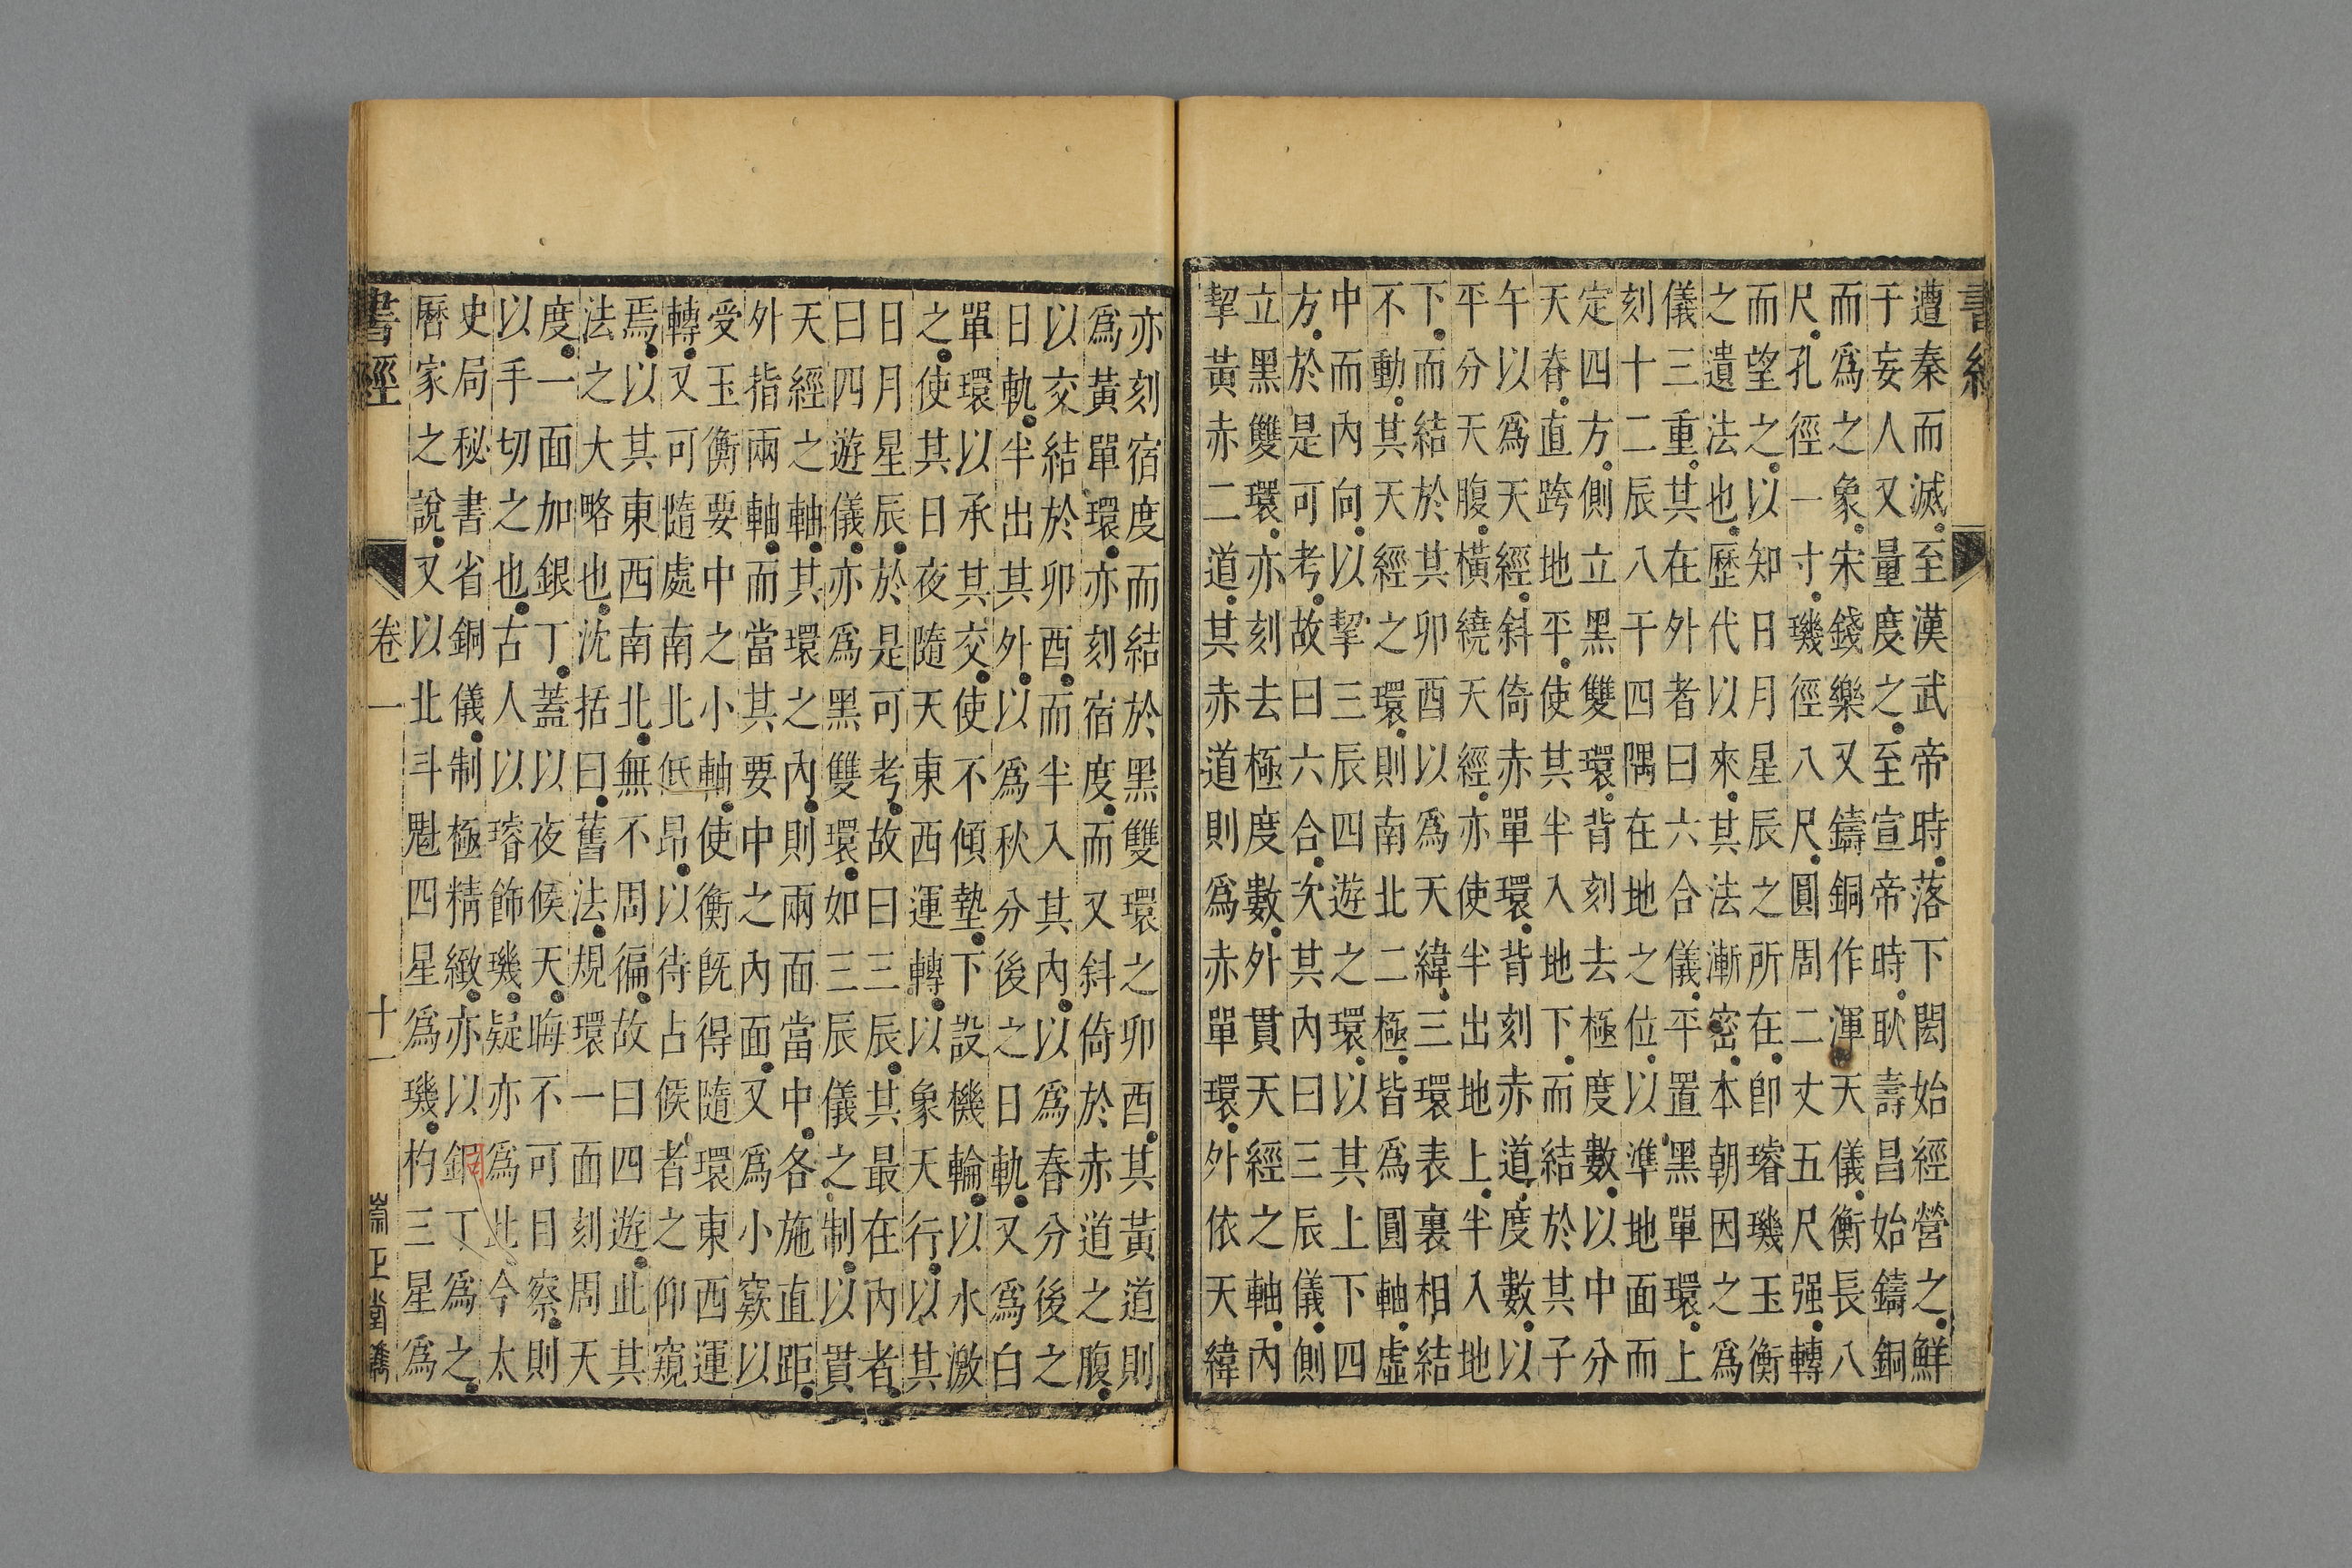 書經
遭秦而滅至漢武帝時落下閎始經營之鮮
于妄人又量度之至宣帝時耿壽昌始鑄銅
而爲之象宋錢樂又鑄銅作渾天儀衡長八
尺孔徑一寸璣徑八尺圓周二丈五尺强轉
而望之以知日月星辰之所在卽璿璣玉衡
之遺法也歷代以來其法漸密本朝因之爲
儀三重其在外者曰六合儀平置黑單環上
刻十二辰八干四隅在地之位以準地面而
定四方側立黑雙環背刻去極度數以中分
天脊直跨地平使其半入地下而結於其子
午以爲天經斜倚赤單環背刻赤道度數以
平分天腹橫繞天經亦使半出地上半入地
下而結於其卯酉以爲天緯三環表裏相結
不動其天經之環則南北二極皆爲圓軸虛
中而內向以挈三辰四遊之環以其上下四
方於是可考故曰六合次其內曰三辰儀側
立黑雙環亦刻去極度數外貫天經之軸內
挈黃赤二道其赤道則爲赤單環外依天緯
亦刻宿度而結於黑雙環之卯酉其黃道則
爲黃單環亦刻宿度而又斜倚於赤道之腹
以交結於卯酉而半入其內以爲春分後之
日軌半出其外以爲秋分後之日軌又爲白
單環以承其交使不傾墊下設機輪以水激
之使其日夜隨天東西運轉以象天行以其
日月星辰於是可考故曰三辰其最在內者
曰四遊儀亦爲黑雙環如三辰儀之制以貫
天經之軸其環之內則兩面當中各施直距
外指兩軸而當其要中之內面又爲小窽以
受玉衡要中之小軸使衡旣得隨環東西運
轉又可隨處南北低昂以待占候者之仰窺
焉以其東西南北無不周徧故曰四遊此其
法之大略也沈括曰舊法規環一面刻周天
度一面加銀丁蓋以夜候天晦不可目察則
以手切之也古人以璿飾璣疑亦爲此今太
史局秘書省銅儀制極精緻亦以銅丁爲之
曆家之說又以北斗魁四星爲璣杓三星爲
書經 卷一 十一